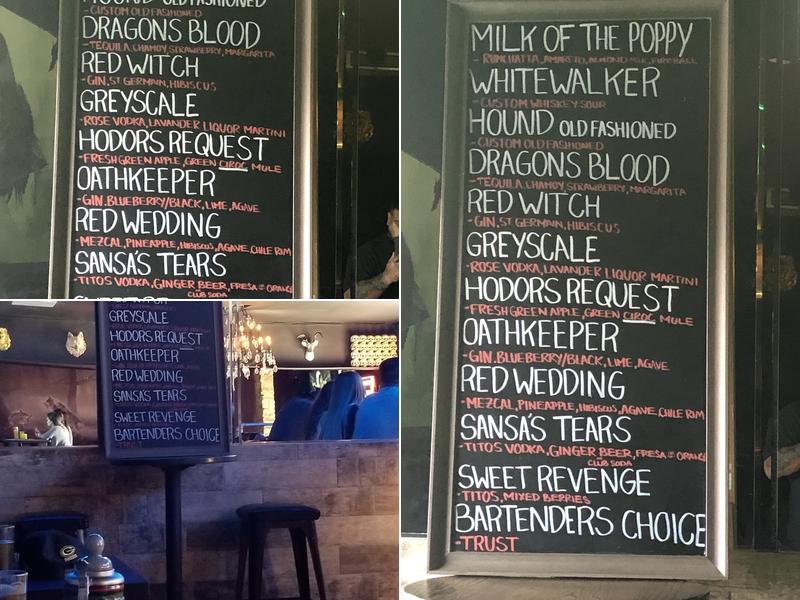 HOUND OLD FASHIONED
- CUSTOM OLD FASHIONED
DRAGONS BLOOD
- TEQUILA, CHAMOY, STRAWBERRY, MARGARITA
RED WITCH
- GIN, ST GERMAIN, HIBISCUS
GREYSCALE
- ROSE VODKA, LAVANDER LIQUOR MARTINI
HODORS REQUEST
- FRESH GREEN APPLE, GREEN CIROC MULE
OATHKEEPER
- GIN, BLUEBERRY/BLACK, LIME, AGAVE
RED WEDDING
- MEZCAL, PINEAPPLE, HIBISCUS, AGAVE, CHILE RIM
SANSA'S TEARS
- TITOS VODKA, GINGER BEER, FRESH OJ ORANGE
CLUB SODA
GREYSCALE
HODORS REQUEST
OATHKEEPER
RED WEDDING
SANSA'S TEARS
SWEET REVENGE
BARTENDERS CHOICE
- TRUST
MILK OF THE POPPY
- RUMCHATTA, AMARETO, ALMOND MILK, FIREBALL
WHITEWALKER
- CUSTOM WHISKEY SOUR
HOUND OLD FASHIONED
- CUSTOM OLD FASHIONED
DRAGONS BLOOD
- TEQUILA, CHAMOY, STRAWBERRY, MARGARITA
RED WITCH
- GIN, ST GERMAIN, HIBISCUS
GREYSCALE
- ROSE VODKA, LAVANDER LIQUOR MARTINI
HODORS REQUEST
- FRESH GREEN APPLE, GREEN CIROC MULE
OATHKEEPER
- GIN, BLUEBERRY/BLACK, LIME, AGAVE
RED WEDDING
- MEZCAL, PINEAPPLE, HIBISCUS, AGAVE, CHILE RIM
SANSA'S TEARS
- TITOS VODKA, GINGER BEER,
CLUB SODA
SWEET REVENGE
- TITOS, MIXED BERRIES
BARTENDERS CHOICE
- TRUST